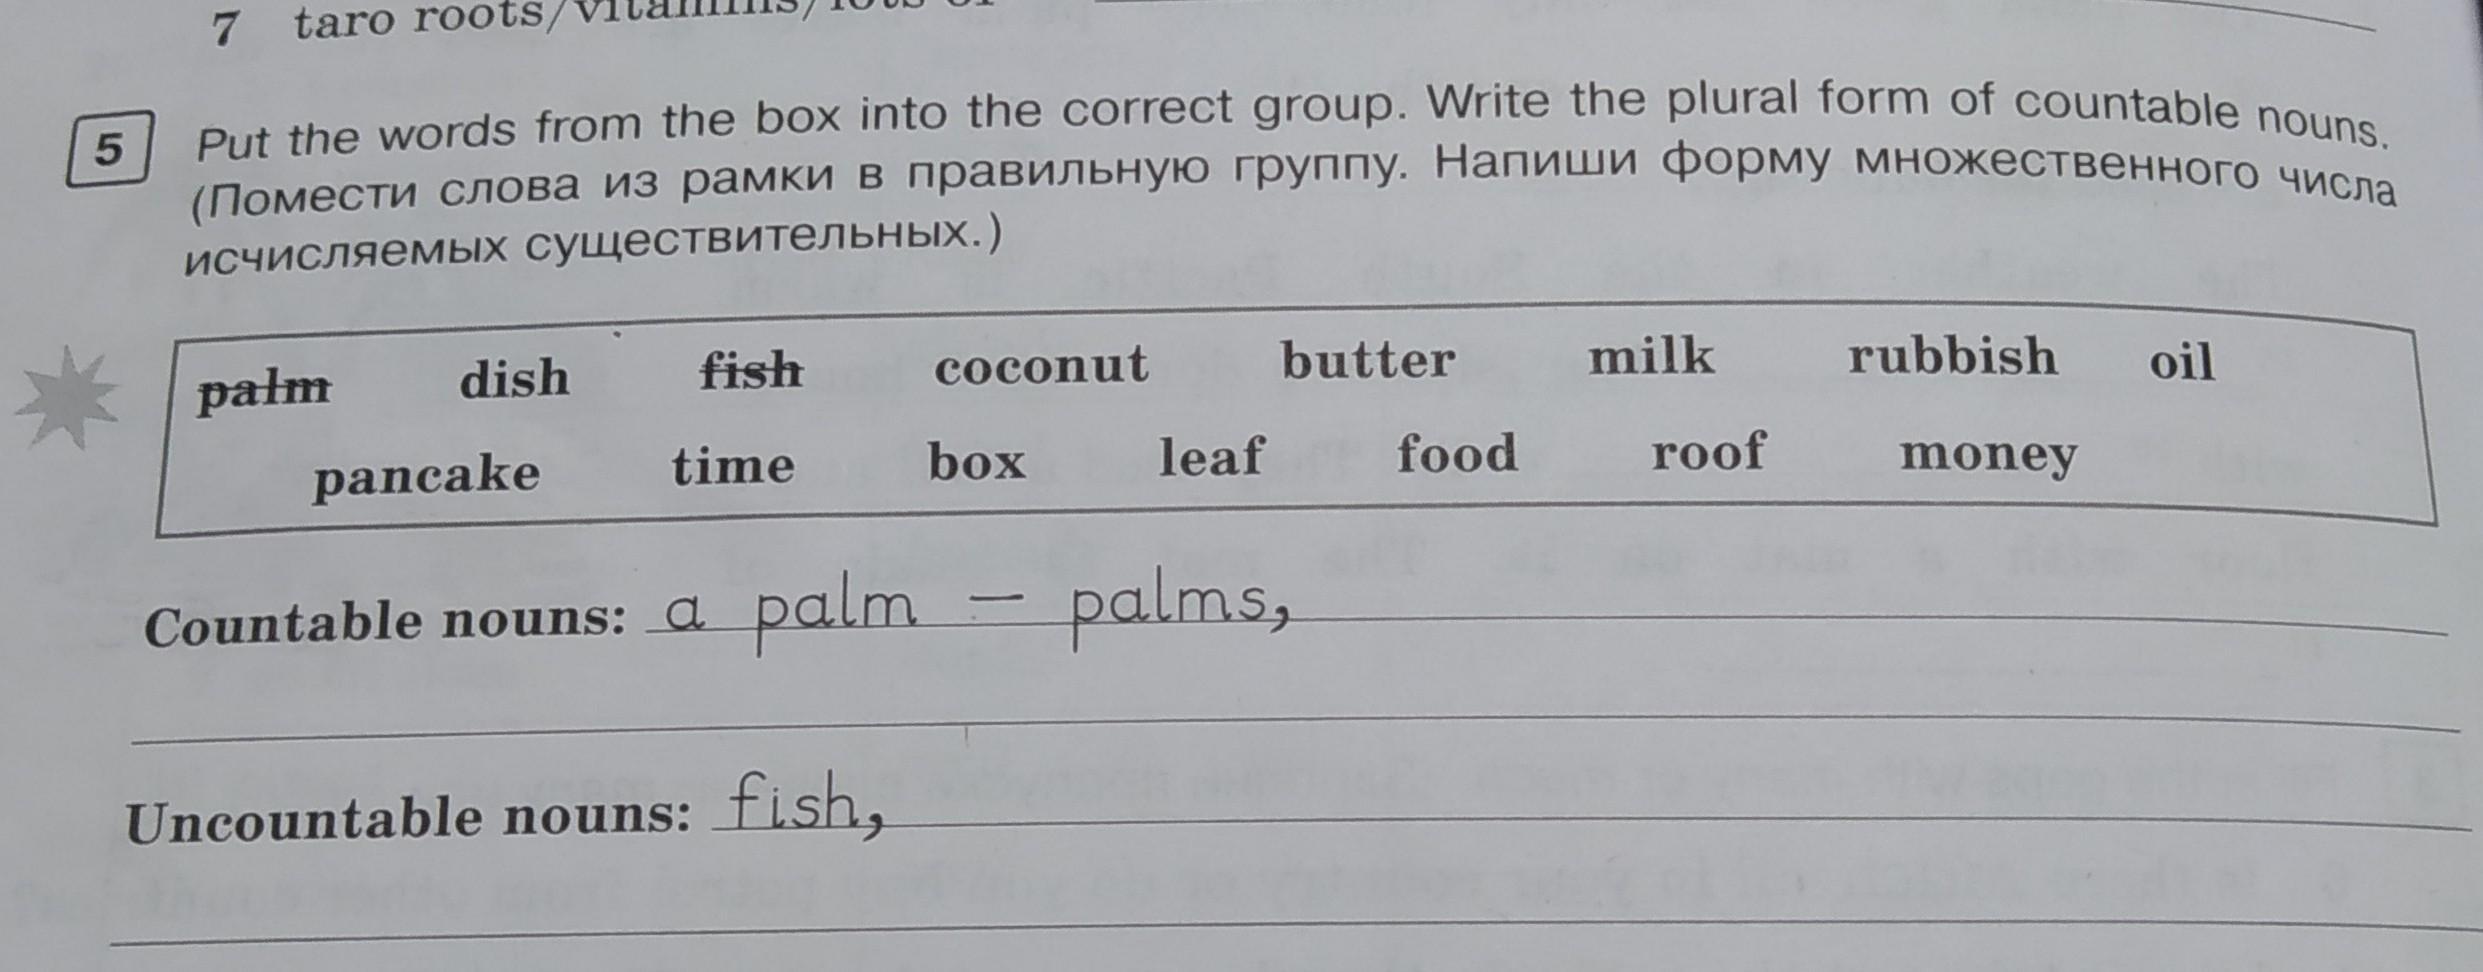 7 taro roots/vitamins/lots of
5 Put the words from the box into the correct group. Write the plural form of countable nouns.
(Помести слова из рамки в правильную группу. Напиши форму множественного числа
исчисляемых существительных.)
palm dish fish coconut butter milk rubbish oil
pancake time box leaf food roof money
Countable nouns: a palm – palms,
Uncountable nouns: fish,